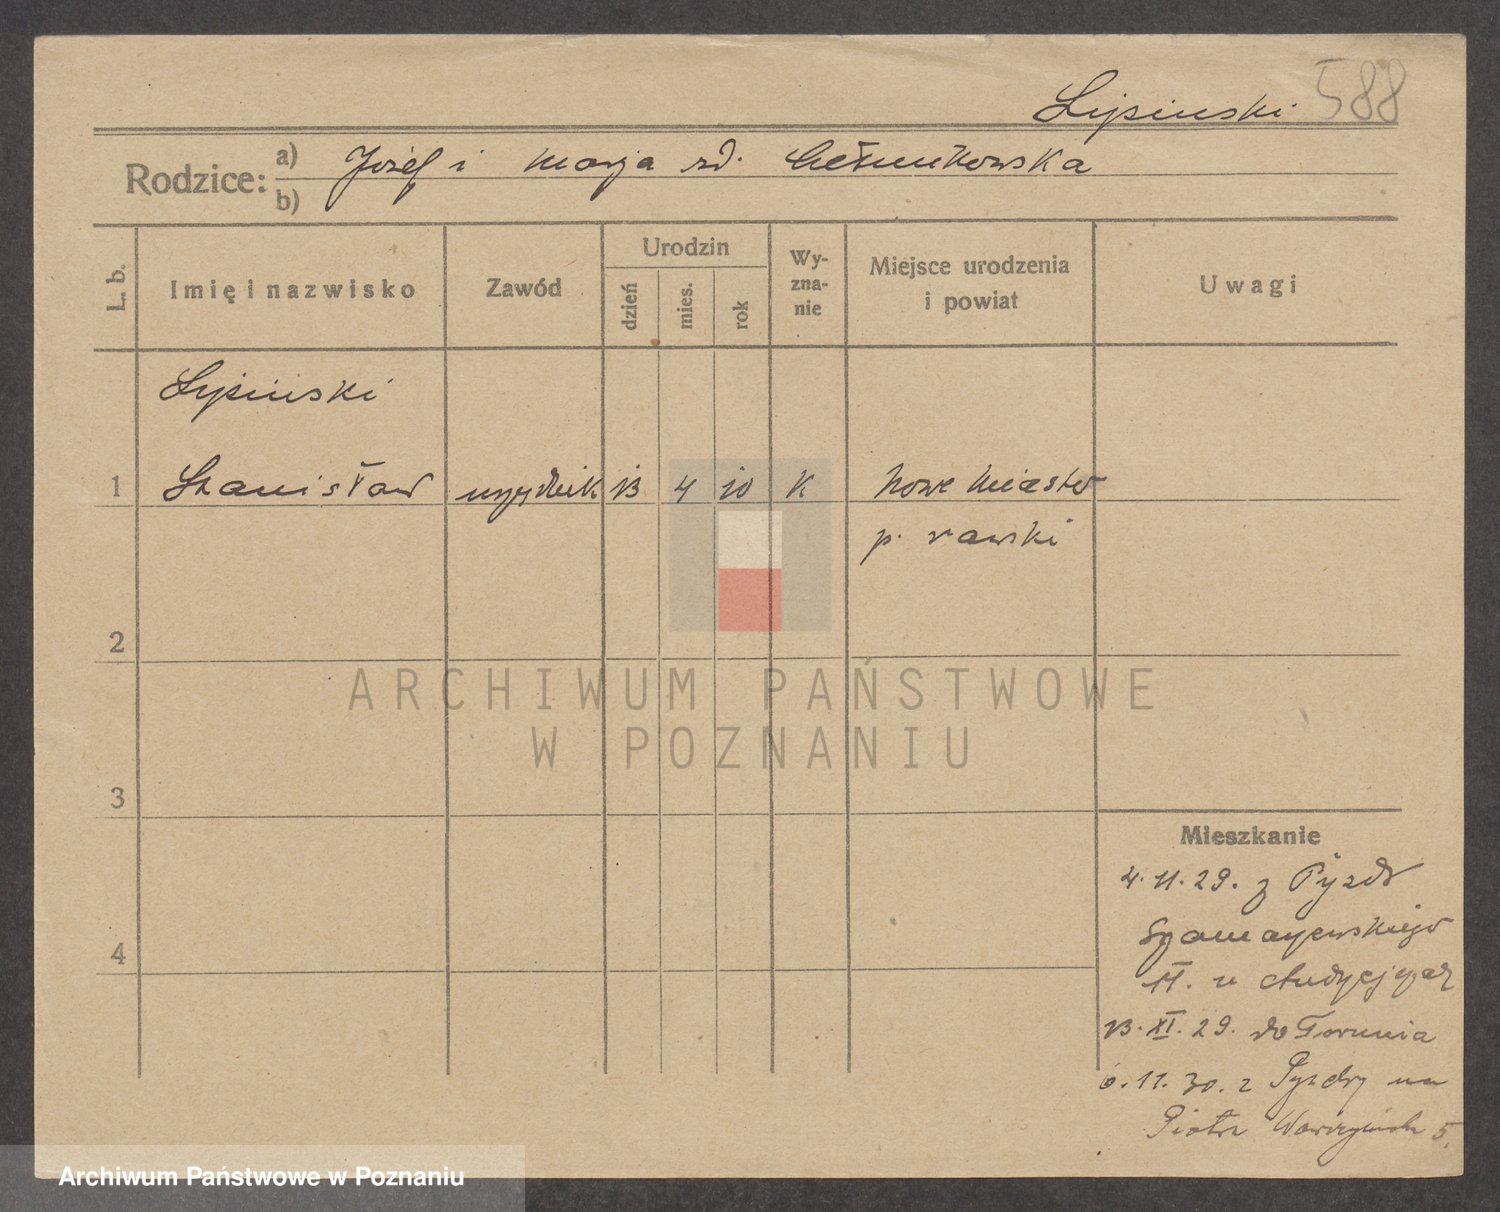 Lipinski 588
Rodzice: a) Józef i Marja zd.
b)
L. b. Imię i nazwisko Zawód Urodzin dzień mies. rok Wy-zna-nie Miejsce urodzenia i powiat Uwagi
Lipiński
1 Stanisław urzędnik 13 4 10 K Nowe Miasto
p. rawski
2
3
4
Mieszkanie
4. 11. 29. z Pyzdr
Szamarzewskiego
11. u
13. XI. 29. do Torunia
6. 11. 30. z Pyzdry na
Piotra Wawrzyniaka 5.
ARCHIWUM PAŃSTWOWE
W POZNANIU
Archiwum Państwowe w Poznaniu